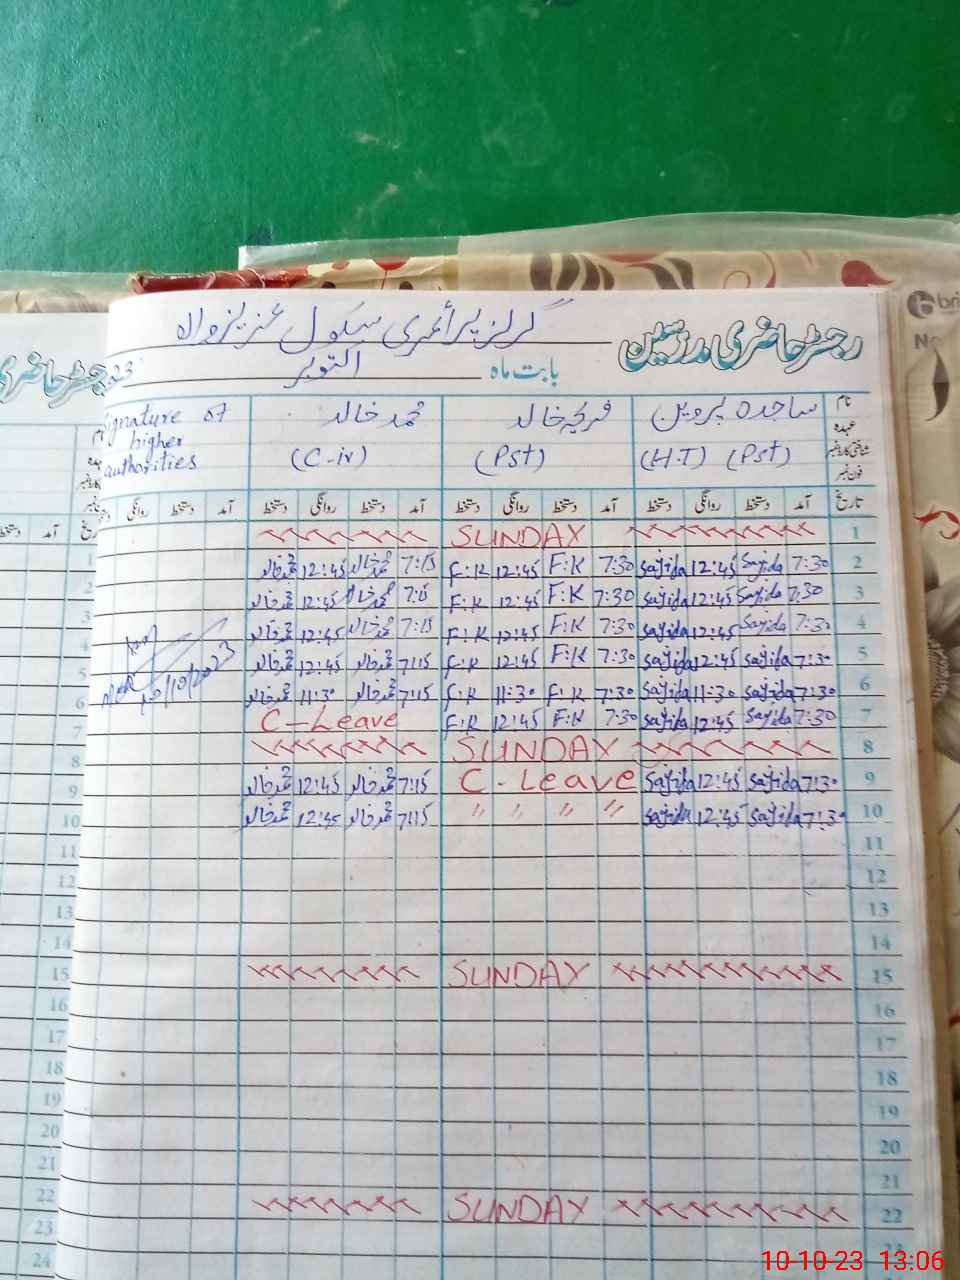 رجسٹر حاضری مدرسین گرلز پرائمری سکول عزیز والا
بابت ماہ اکتوبر 23
نام ساجدہ پروین فریحہ خالد محمد خالد Signature of
عہدہ higher
شناختی کارڈ نمبر (H.T) (Pst) (Pst) (C-iv) authorities
فون نمبر
تاریخ آمد دستخط روانگی دستخط آمد دستخط روانگی دستخط آمد دستخط روانگی دستخط آمد دستخط روانگی
1 SUNDAY
2 7:30 Sajida 12:45 Sajida 7:30 F:K 12:45 F:K 7:15 محمد خالد 12:45 محمد خالد
3 7:30 Sajida 12:45 Sajida 7:30 F:K 12:45 F:K 7:15 محمد خالد 12:45 محمد خالد
4 7:30 Sajida 12:45 Sajida 7:30 F:K 12:45 F:K 7:15 محمد خالد 12:45 محمد خالد
5 7:30 Sajida 12:45 Sajida 7:30 F:K 12:45 F:K 7:15 محمد خالد 12:45 محمد خالد
6 7:30 Sajida 11:30 Sajida 7:30 F:K 11:30 F:K 7:15 محمد خالد 11:30 محمد خالد
10/10/2023
7 7:30 Sajida 12:45 Sajida 7:30 F:K 12:45 F:K C-Leave
8 SUNDAY
9 7:30 Sajida 12:45 Sajida C-Leave 7:15 محمد خالد 12:45 محمد خالد
10 7:30 Sajida 12:45 Sajida " " " " 7:15 محمد خالد 12:45 محمد خالد
11
12
13
14
15 SUNDAY
16
17
18
19
20
21
22 SUNDAY
10-10-23 13:06